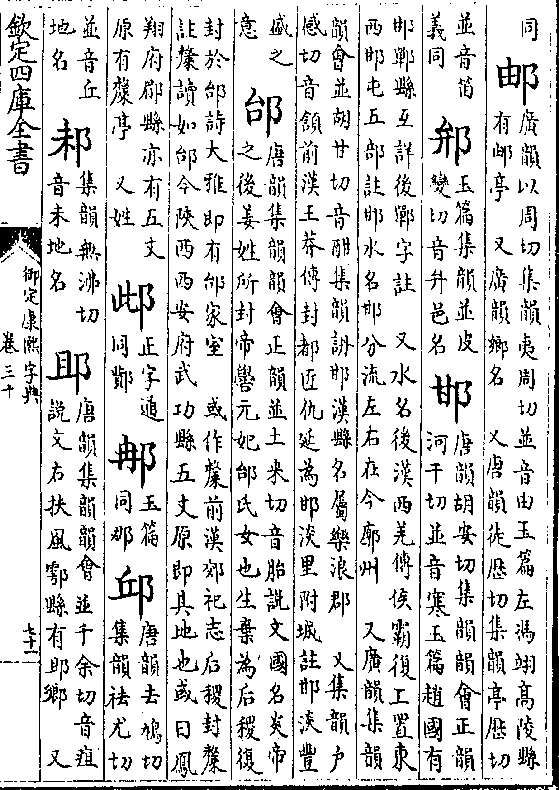 同
邮
廣韻以周切集韻夷周切並音由玉篇左馮翊高陵縣
有邮亭　又廣韻鄉名　又唐韻徒歴切集韻亭歴切
並音笛
義同
玉篇集韻並皮
變切音弁邑名
邯
唐韻胡安切集韻韻會正韻
河干切並音寒玉篇趙國有
邯鄲縣互詳後鄲字註　又水名後漢西羌傳侯霸復上置東
西邯屯五部註邯水名邯分流左右在今廓州　又廣韻集韻
韻會並胡甘切音酣集韻訷邯漢縣名屬樂浪郡　又集韻戶
感切音頷前漢王莽傳封都匠仇延為邯淡里附城註邯淡豐
盛之
意
邰
唐韻集韻韻會正韻並土來切音胎說文國名炎帝
之後姜姓所封帝嚳元妃邰氏女也生棄為后稷復
封於邰詩大雅即有邰家室　或作斄前漢郊祀志后稷封斄
註斄讀如邰今陝西西安府武功縣五丈原即其地也或曰鳳
翔府郿縣亦有五丈
原有斄亭　又姓
正字通
同
玉篇
同那
邱
唐韻去鳩切
集韻祛尤切
並音丘
地名
集韻無沸切
音未地名
䢸
唐韻集韻韻會並千余切音疽
說文右扶風鄠縣有䢸鄉　又
欽定四庫全書
御定康熙字典
卷三十
七十一